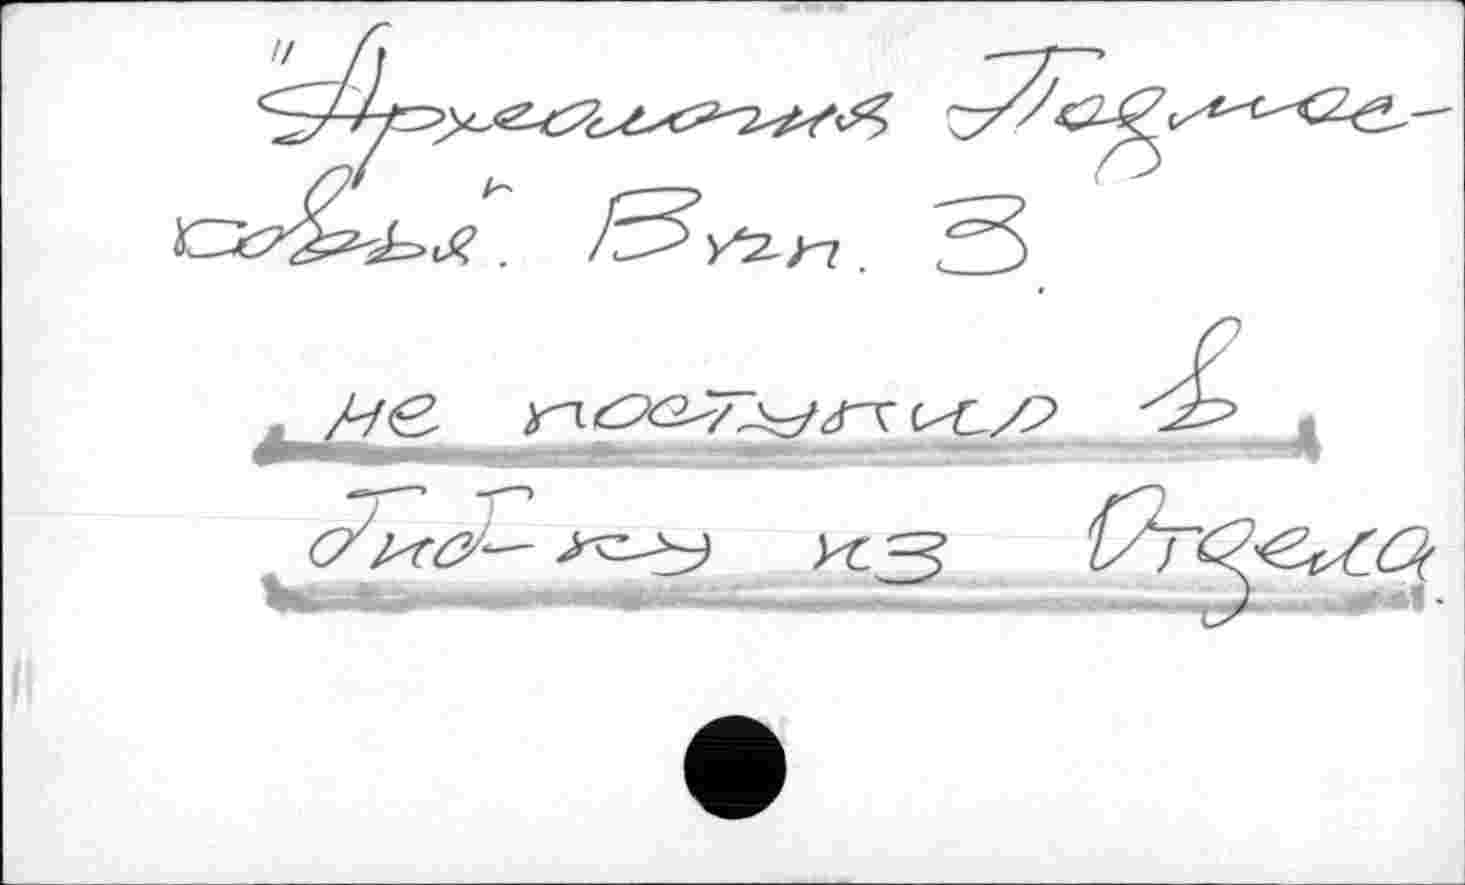 "Археология Подмос-
ковья". Вып. 3
не поступил в
биб-ку из Отдела.